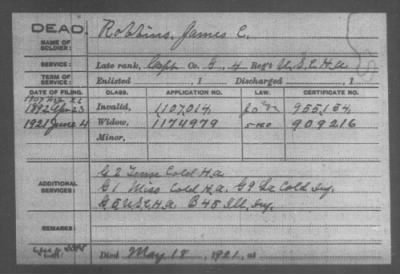 DEAD.
NAME OF SOLDIER: Robbins, James C.
SERVICE: Late rank, Capt Co. G, 4 Reg't U.S.C.H.A.
TERM OF SERVICE: Enlisted , 1 Discharged , 1
DATE OF FILING. CLASS. APPLICATION NO. LAW. CERTIFICATE NO.
1892 Apr 23 Invalid, 1,107,014 955,154
1921 June 4 Widow, 1174979 909216
Minor,
ADDITIONAL SERVICES: G 2 Tenn Cold H.A.
G 1 Miss Cold H.A. G 9 La Cold Inf.
G 5 U.S.C.H.A. B 45 Ill. Inf.
REMARKS:
Died May 18, 1921, at